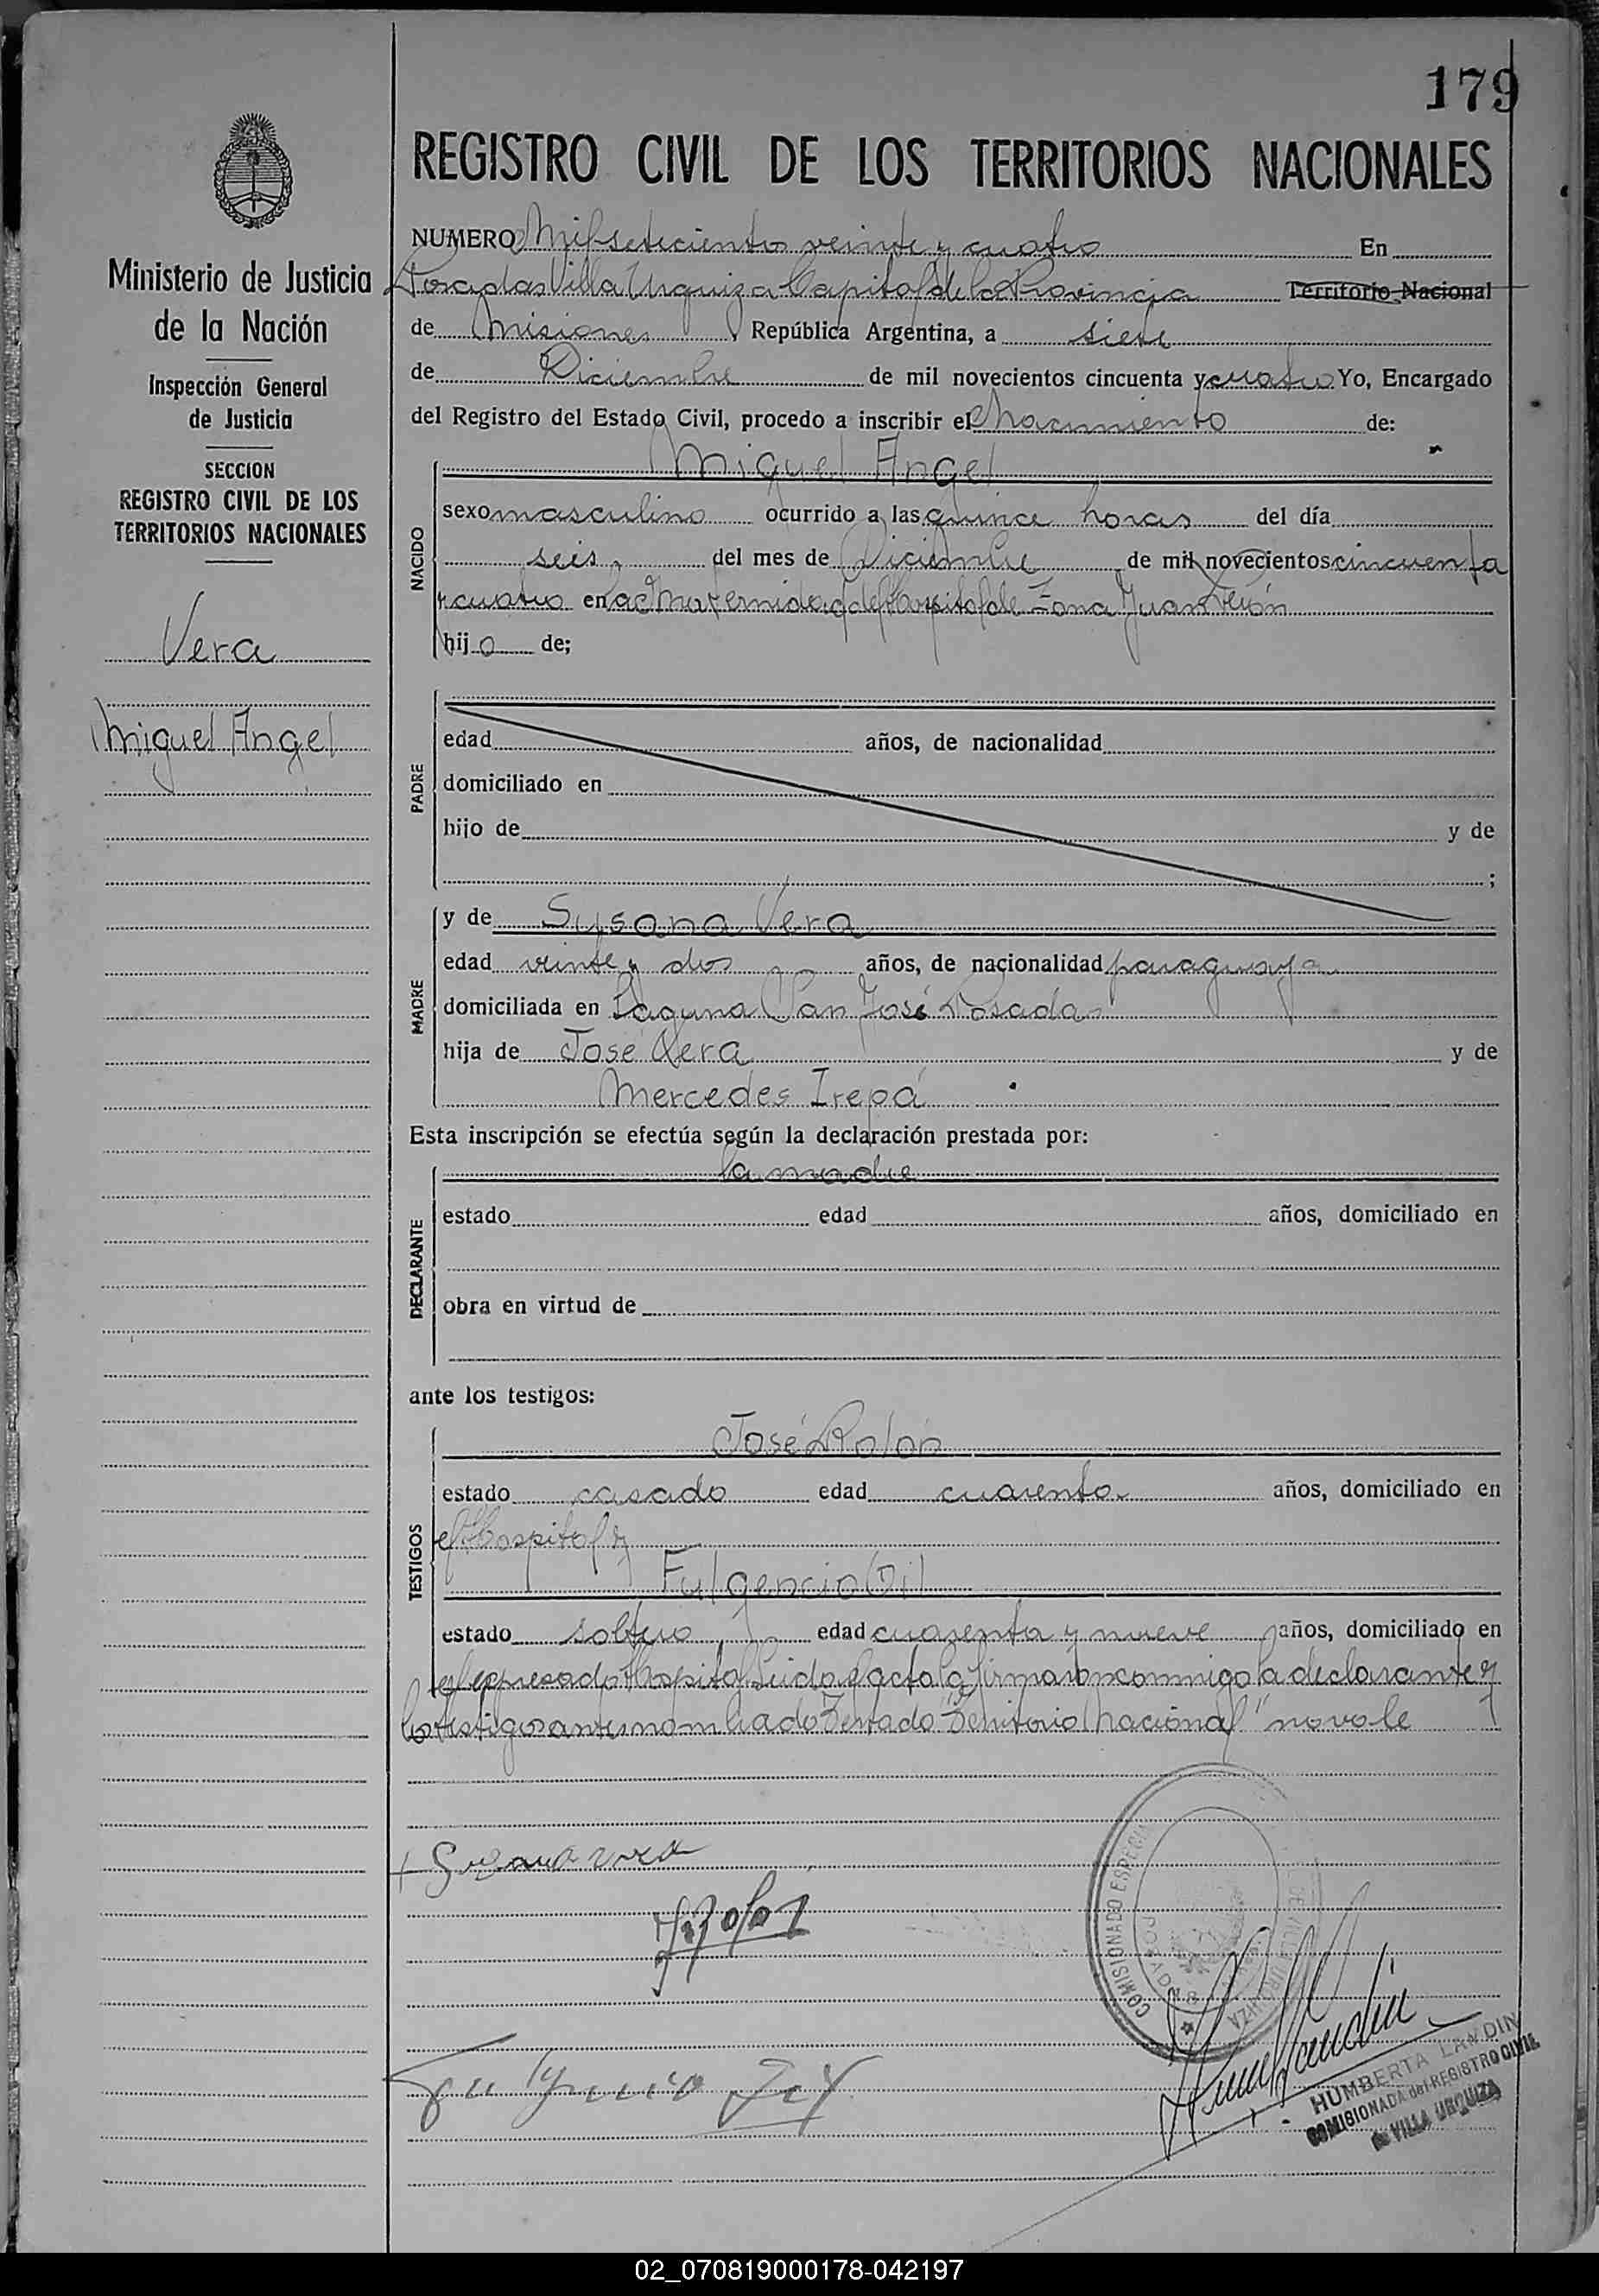 179
REGISTRO CIVIL DE LOS TERRITORIOS NACIONALES
Ministerio de Justicia
de la Nación
Inspección General
de Justicia
SECCION
REGISTRO CIVIL DE LOS
TERRITORIOS NACIONALES
Vera
Miguel Angel
NUMERO Mil setecientos veinte y cuatro En
Posadas Villa Urquiza Capital de la Provincia Territorio Nacional
de Misiones República Argentina, a siete
de Diciembre de mil novecientos cincuenta y cuatro Yo, Encargado
del Registro del Estado Civil, procedo a inscribir el Nacimiento de:
Miguel Angel
NACIDO
sexo masculino ocurrido a las quince horas del día
seis del mes de Diciembre de mil novecientos cincuenta
y cuatro en la Maternidad del Hospital de Zona Juan Perón
hijo de;
PADRE
edad años, de nacionalidad
domiciliado en
hijo de y de
;
MADRE
y de Susana Vera
edad veinte y dos años, de nacionalidad paraguaya
domiciliada en Laguna San José Posadas
hija de Jose Vera y de
Mercedes Irepa
Esta inscripción se efectúa según la declaración prestada por:
la madre
DECLARANTE
estado edad años, domiciliado en
obra en virtud de
ante los testigos:
TESTIGOS
José Rolón
estado casado edad cuarenta años, domiciliado en
el Hospital y
Fulgencio Gil
estado soltero edad cuarenta y nueve años, domiciliado en
el expresado Hospital Leida el acta la firmaron conmigo la declarante y
los testigos antes nombrado Testado "Territorio Nacional" no vale
Susana Vera
COMISIONADO ESPECIAL
DE VILLA URQUIZA
POSADAS
HUMBERTA LANDIN
COMISIONADA del REGISTRO CIVIL
de VILLA URQUIZA
02_070819000178-042197